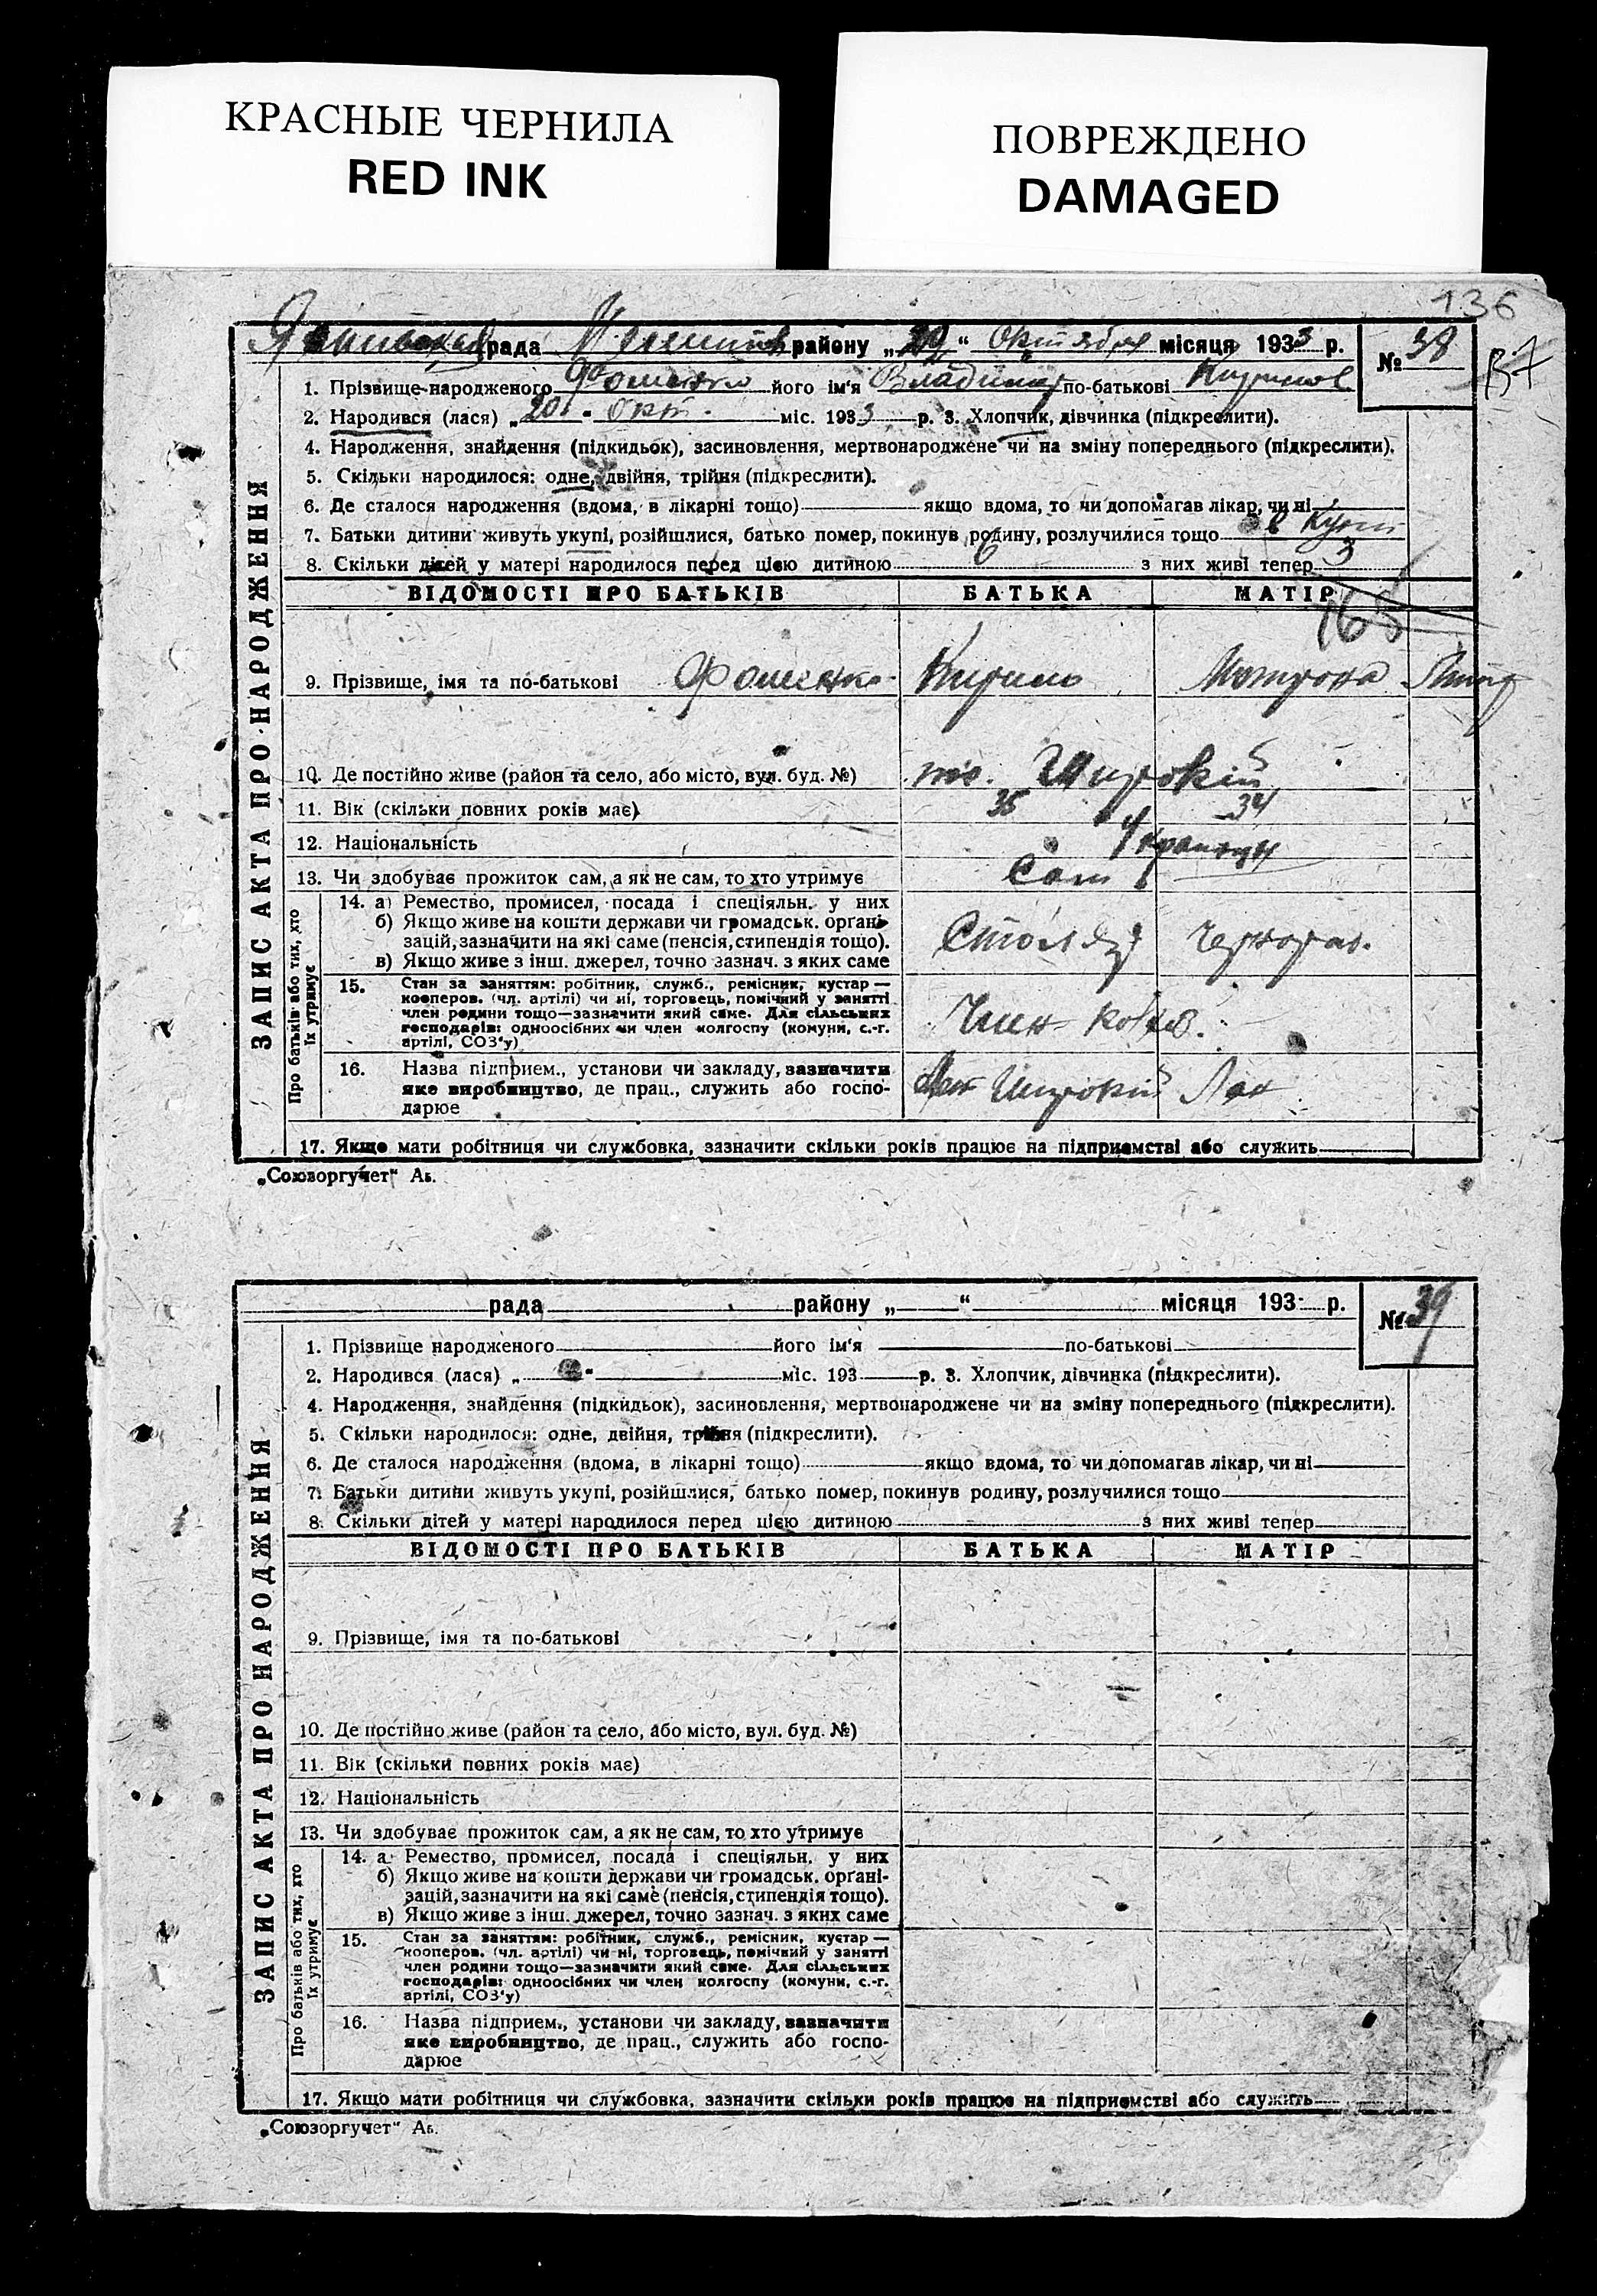 КРАСНЫЕ ЧЕРНИЛА
RED INK
ПОВРЕЖДЕНО
DAMAGED
136
рада району „29“ Октября місяця 1933 р.
№ 38
1. Прізвище народженого Фоменко його ім'я Владимир по-батькові Кирилов
2. Народився (лася) „20“ Окт. міс. 1933 р. 3. Хлопчик, дівчинка (підкреслити).
4. Народження, знайдення (підкидьок), засиновлення, мертвонароджене чи на зміну попереднього (підкреслити).
5. Скільки народилося: одне, двійня, трійня (підкреслити).
6. Де сталося народження (вдома, в лікарні тощо) якщо вдома, то чи допомагав лікар, чи ні
7. Батьки дитини живуть укупі, розійшлися, батько помер, покинув родину, розлучилися тощо
8. Скільки дітей у матері народилося перед цією дитиною 6 з них живі тепер 3
ВІДОМОСТІ ПРО БАТЬКІВ БАТЬКА МАТІР
165
9. Прізвище, імя та по-батькові Фоменко Кирило Мотрона
10. Де постійно живе (район та село, або місто, вул. буд. №) Широкій
11. Вік (скільки повних років має) 35 34
12. Національність Українцы
13. Чи здобуває прожиток сам, а як не сам, то хто утримує Сам
14. а) Ремество, промисел, посада і спеціяльн. у них
б) Якщо живе на кошти держави чи громадськ. органі-
зацій, зазначити на які саме (пенсія, стипендія тощо).
в) Якщо живе з інш. джерел, точно зазнач. з яких саме
Столяр Чернораб.
15. Стан за заняттям: робітник, служб., ремісник, кустар —
кооперов. (чл. артілі) чи ні, торговець, помічний у занятті
член родини тощо—зазначити який саме. Для сільських
господарів: одноосібних чи член колгоспу (комуни, с.-г.
артілі, СОЗ'у)
Член
16. Назва підприєм., установи чи закладу, зазначити
яке виробництво, де прац., служить або госпо-
дарює
Широкий Лан
17. Якщо мати робітниця чи службовка, зазначити скільки років працює на підприємстві або служить
ЗАПИС АКТА ПРО НАРОДЖЕННЯ
Про батьків або тих, хто
їх утримує
„Союзоргучет“ Аб.
рада району „ “ місяця 193 р.
№ 39
1. Прізвище народженого його ім'я по-батькові
2. Народився (лася) „ “ міс. 193 р. 3. Хлопчик, дівчинка (підкреслити).
4. Народження, знайдення (підкидьок), засиновлення, мертвонароджене чи на зміну попереднього (підкреслити).
5. Скільки народилося: одне, двійня, трійня (підкреслити).
6. Де сталося народження (вдома, в лікарні тощо) якщо вдома, то чи допомагав лікар, чи ні
7. Батьки дитини живуть укупі, розійшлися, батько помер, покинув родину, розлучилися тощо
8. Скільки дітей у матері народилося перед цією дитиною з них живі тепер
ВІДОМОСТІ ПРО БАТЬКІВ БАТЬКА МАТІР
9. Прізвище, імя та по-батькові
10. Де постійно живе (район та село, або місто, вул. буд. №)
11. Вік (скільки повних років має)
12. Національність
13. Чи здобуває прожиток сам, а як не сам, то хто утримує
14. а Ремество, промисел, посада і спеціяльн. у них
б) Якщо живе на кошти держави чи громадськ. органі-
зацій, зазначити на які саме (пенсія, стипендія тощо).
в) Якщо живе з інш. джерел, точно зазнач. з яких саме
15. Стан за заняттям: робітник, служб., ремісник, кустар —
кооперов. (чл. артілі) чи ні, торговець, помічний у занятті
член родини тощо—зазначити який саме. Для сільських
господарів: одноосібних чи член колгоспу (комуни, с.-г.
артілі, СОЗ'у)
16. Назва підприєм., установи чи закладу, зазначити
яке виробництво, де прац., служить або госпо-
дарює
17. Якщо мати робітниця чи службовка, зазначити скільки років працює на підприємстві або служить
ЗАПИС АКТА ПРО НАРОДЖЕННЯ
Про батьків або тих, хто
їх утримує
„Союзоргучет“ Аб.